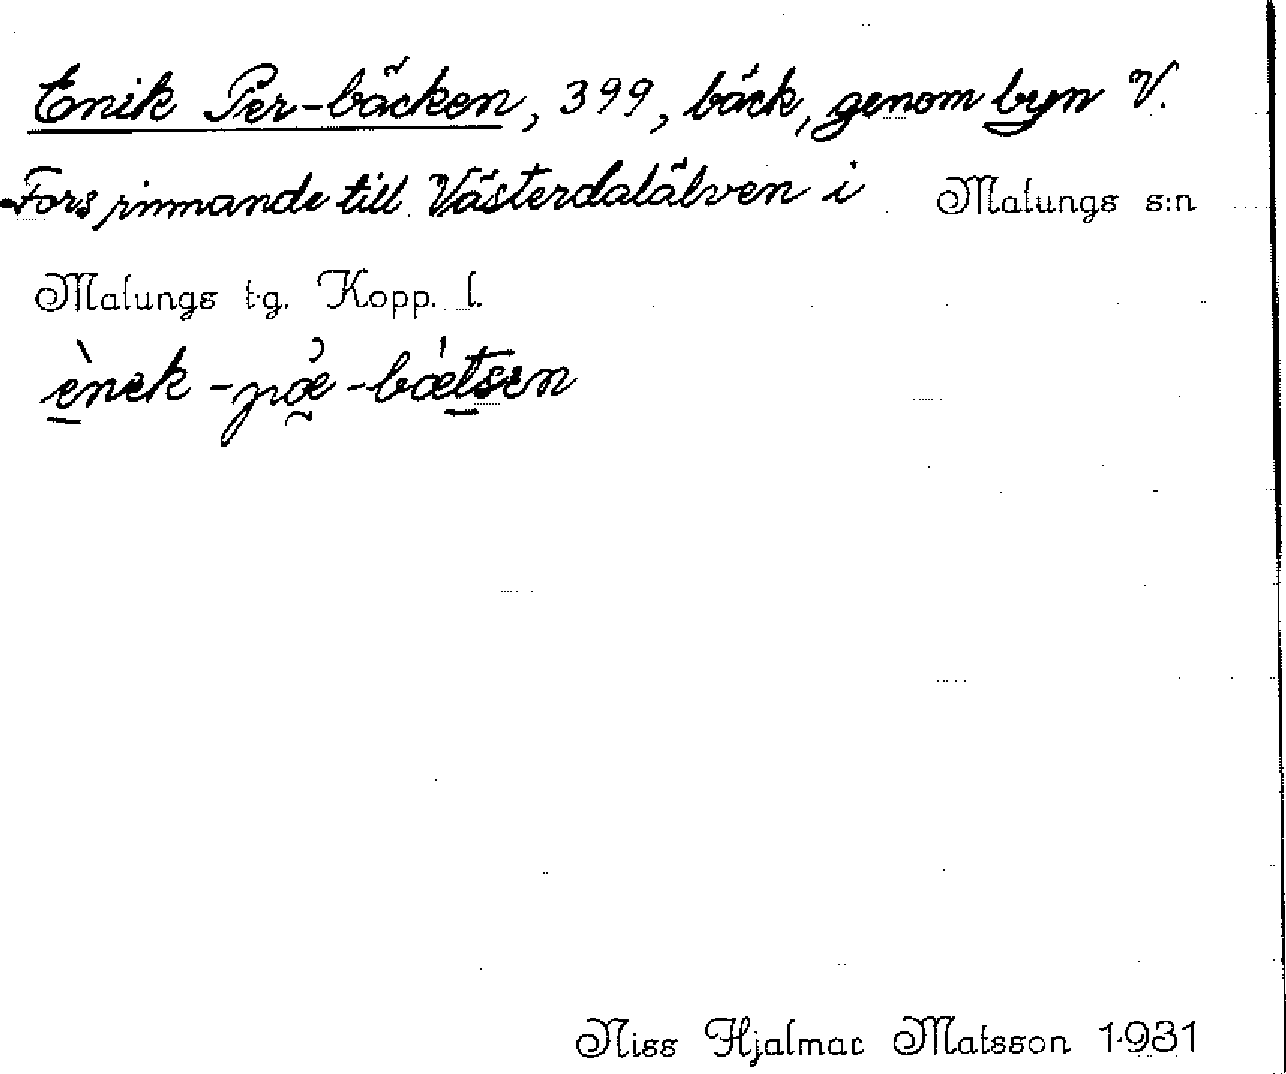 Enik Per-bäcken, 399, bäck, genom byn V.
Fors rinnande till Västerdalälven i Malungs s:n
Malungs tg. Kopp. l.
ènek -pæ̀ -bǽtsen
Niss Hjalmar Matsson 1931